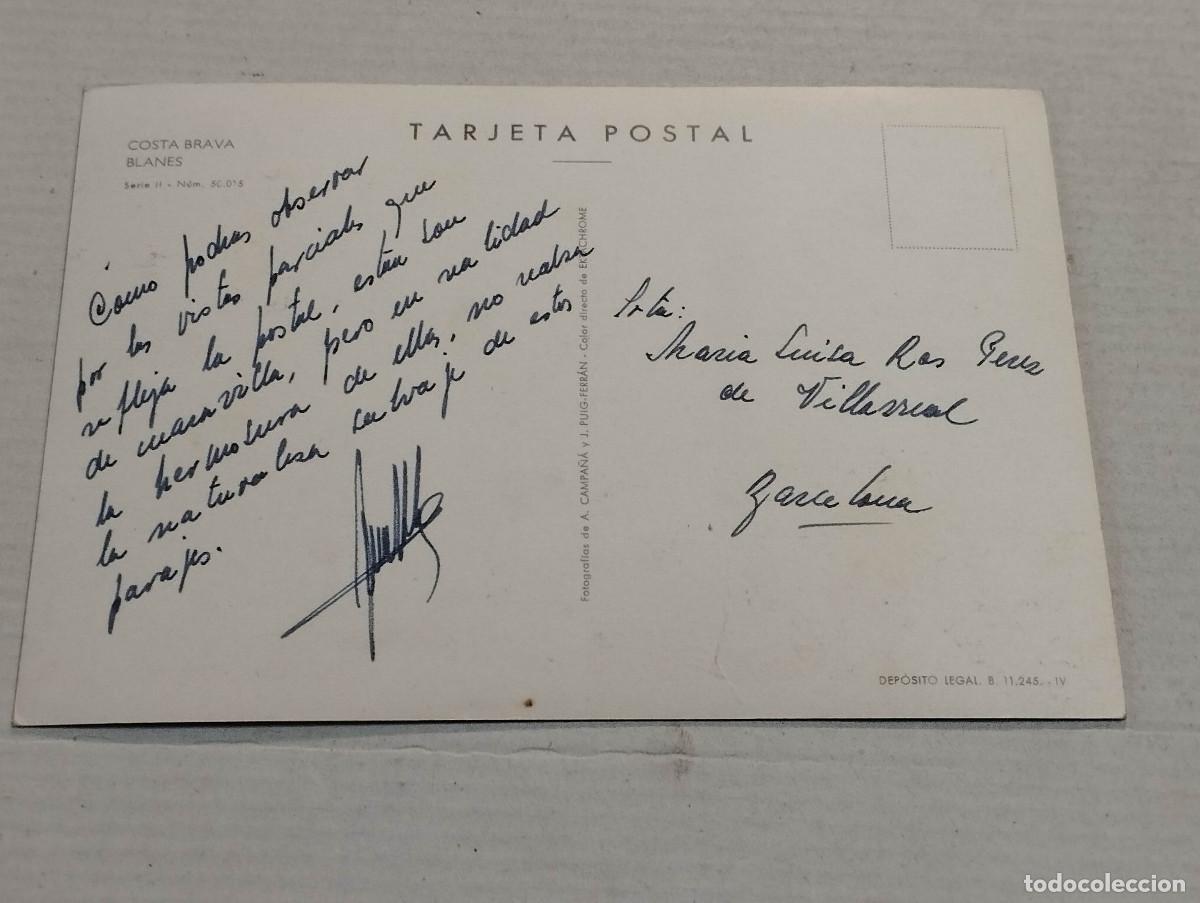 COSTA BRAVA
BLANES
Serie II - Núm. 50.015
TARJETA POSTAL
Cómo podras observar
por las vistas parciales que
refleja la postal, están son
de maravilla, pero en realidad
la hermosura de ellas, no realza
la naturalesa salvaje de estos
parajes.
Fotografías de A. CAMPAÑÁ y J. PUIG-FERRÁN - Color directo de EKTACHROME
Srta:
Maria Luisa Ros Perez
de Villarreal
Barcelona
DEPÓSITO LEGAL. B. 11.245. - IV
todocoleccion